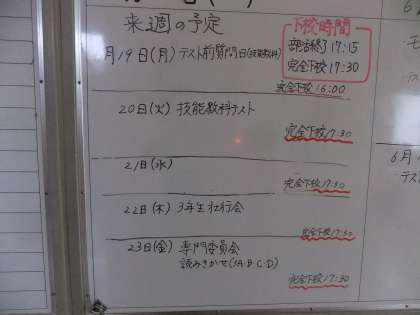 来週の予定
下校時間
部活終了 17:15
完全下校 17:30
月19日(月) テスト前質問日(技能教科)
完全下校 16:00
20日(火) 技能教科テスト
完全下校 17:30
21日(水)
完全下校 17:30
22日(木) 3年生壮行会
完全下校 17:30
23日(金) 専門委員会
読みきかせ(3A・B・C・D)
完全下校 17:30
6月
テス